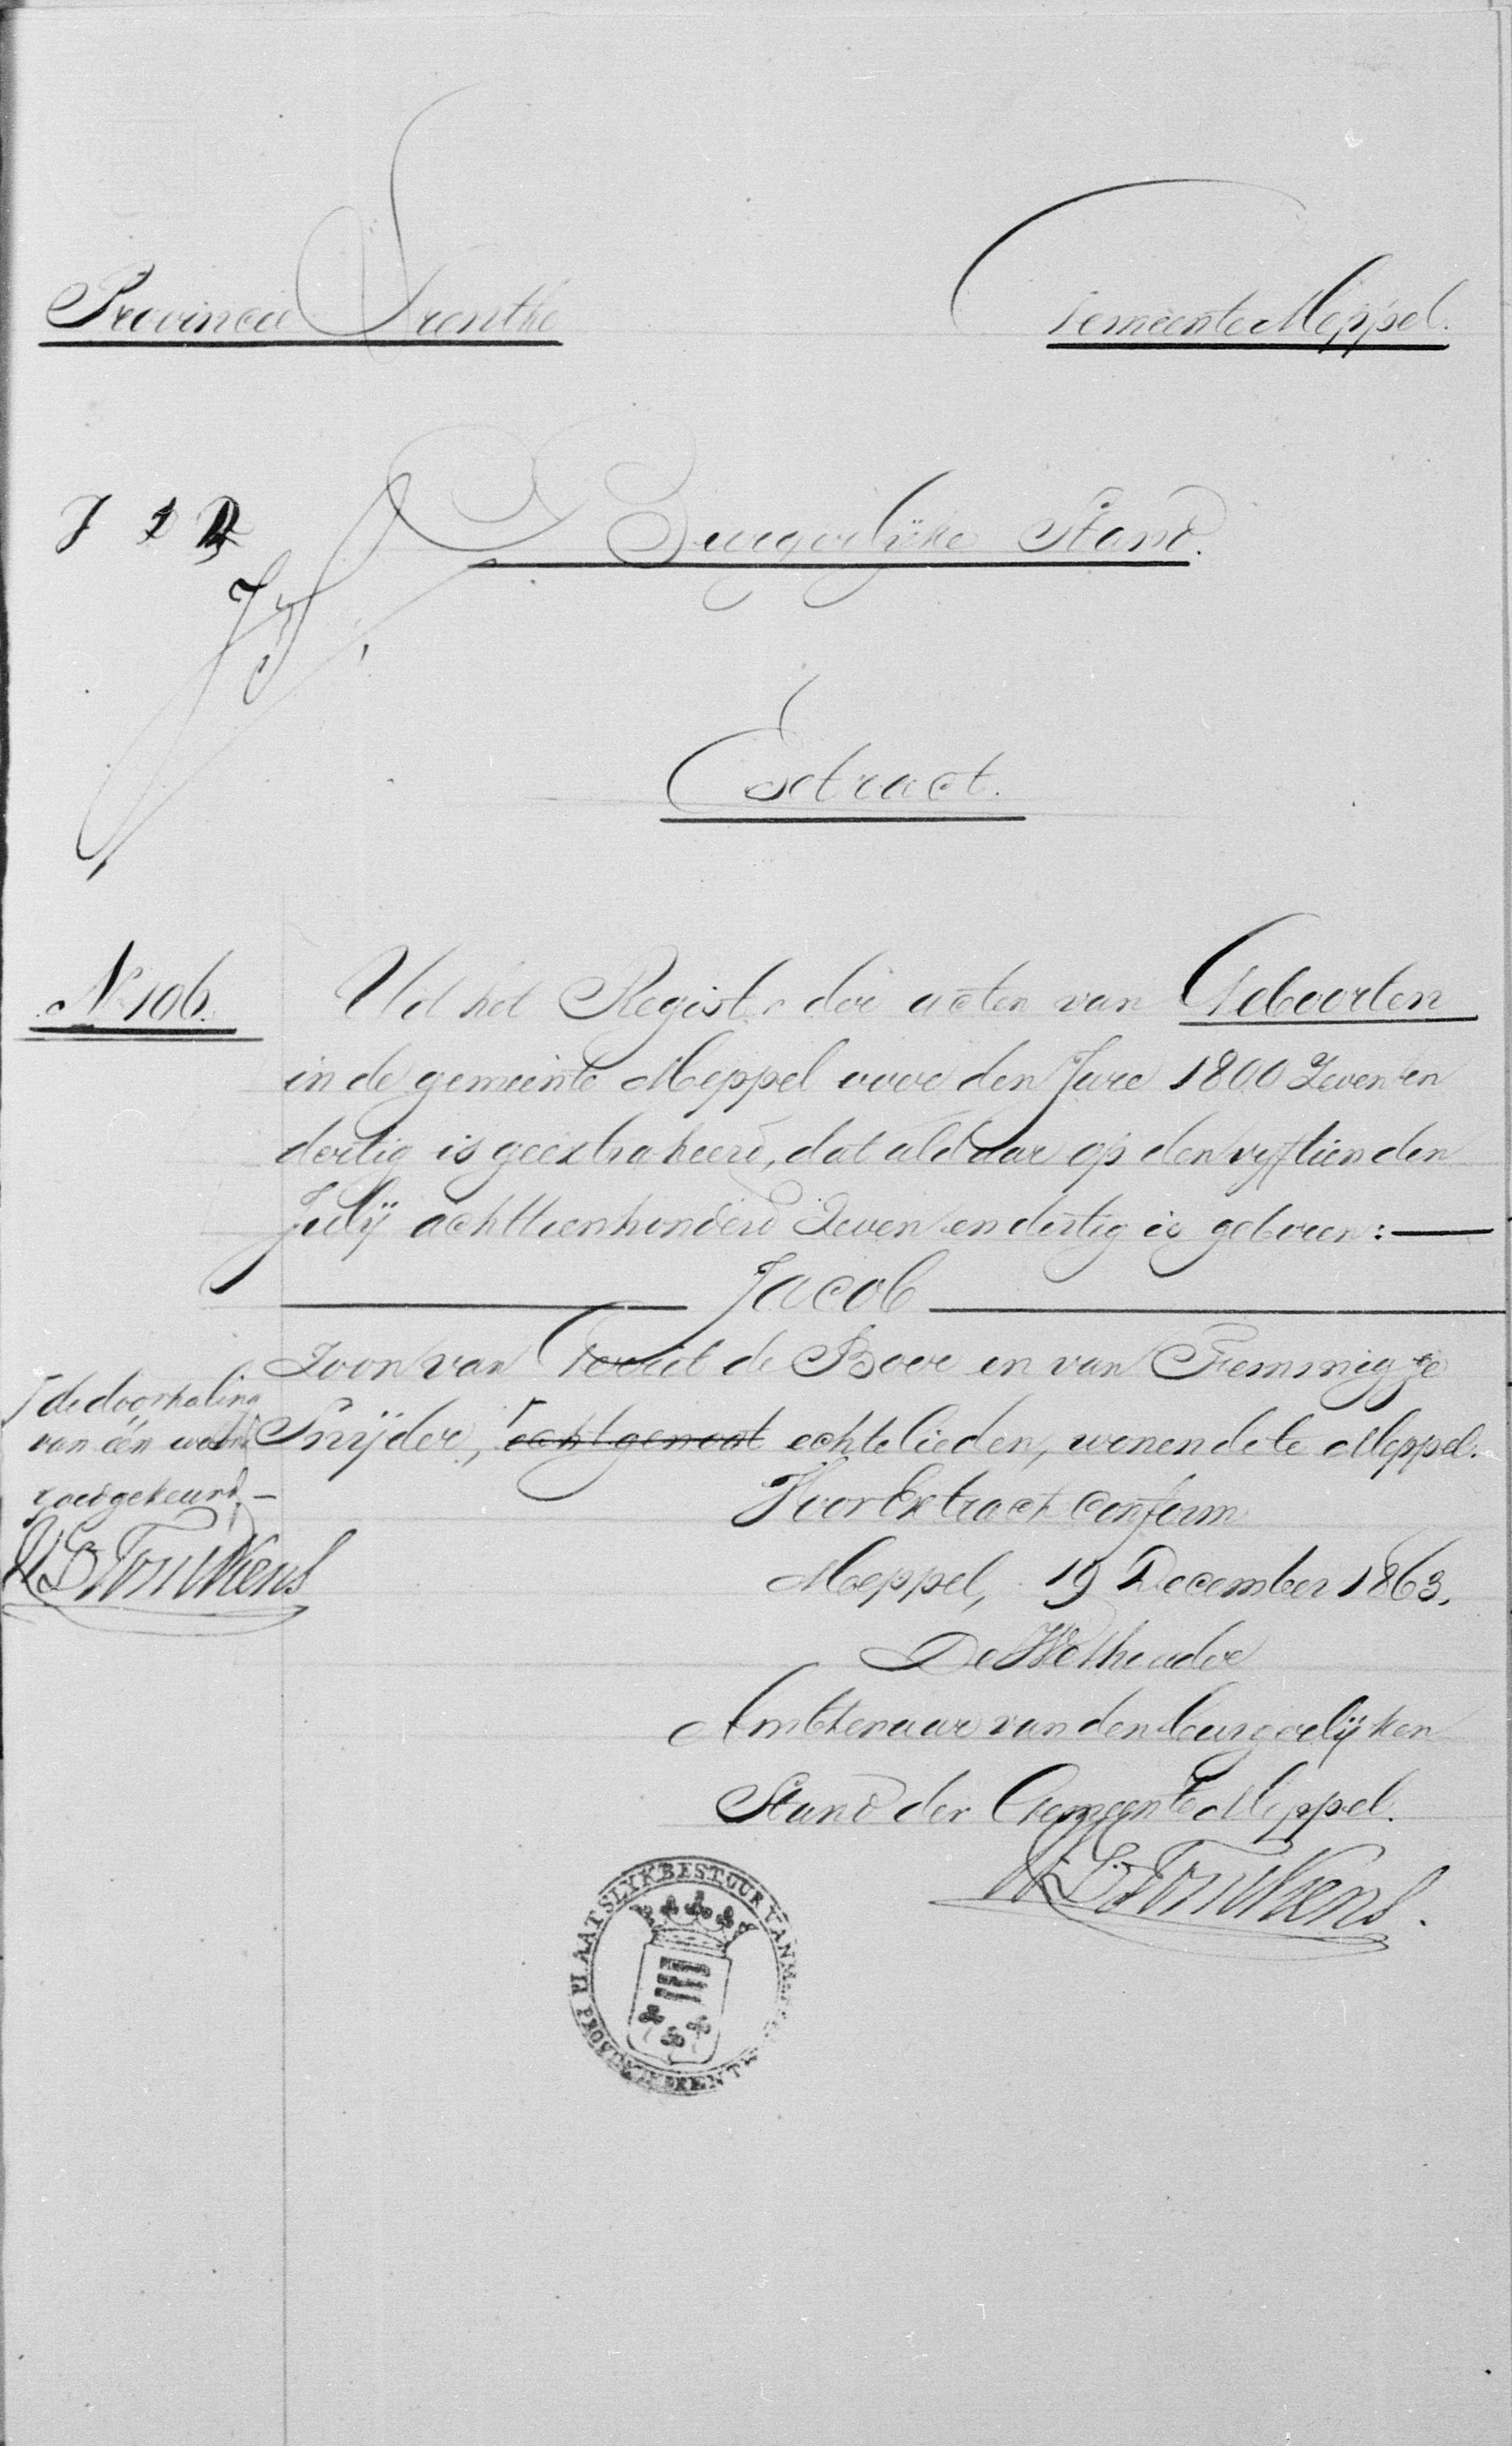 Provincie Drenthe
Gemeente Meppel.
Burgerlijke Stand.
Extract.
N 106.
Uit het Register der acten van Geboorten
in de gemeente Meppel voor den Jare 1800 Zeven en
dertig is geextraheerd, dat aldaar op den vyftienden
Julij achttienhonderd Zeven en dertig is geboren:
Jacob
Zoon van Geert de Boer en van Femmigje
Snijder, echtgenoot echtelieden, wonende te Meppel.
de doorhaling
van één woord
goedgekeurd.
Voor Extract conform
Meppel, 19 December 1863.
De Wethouder
Ambtenaar van den burgerlijken
Stand der Gemeente Meppel.
PLAATSLYK BESTUUR VAN